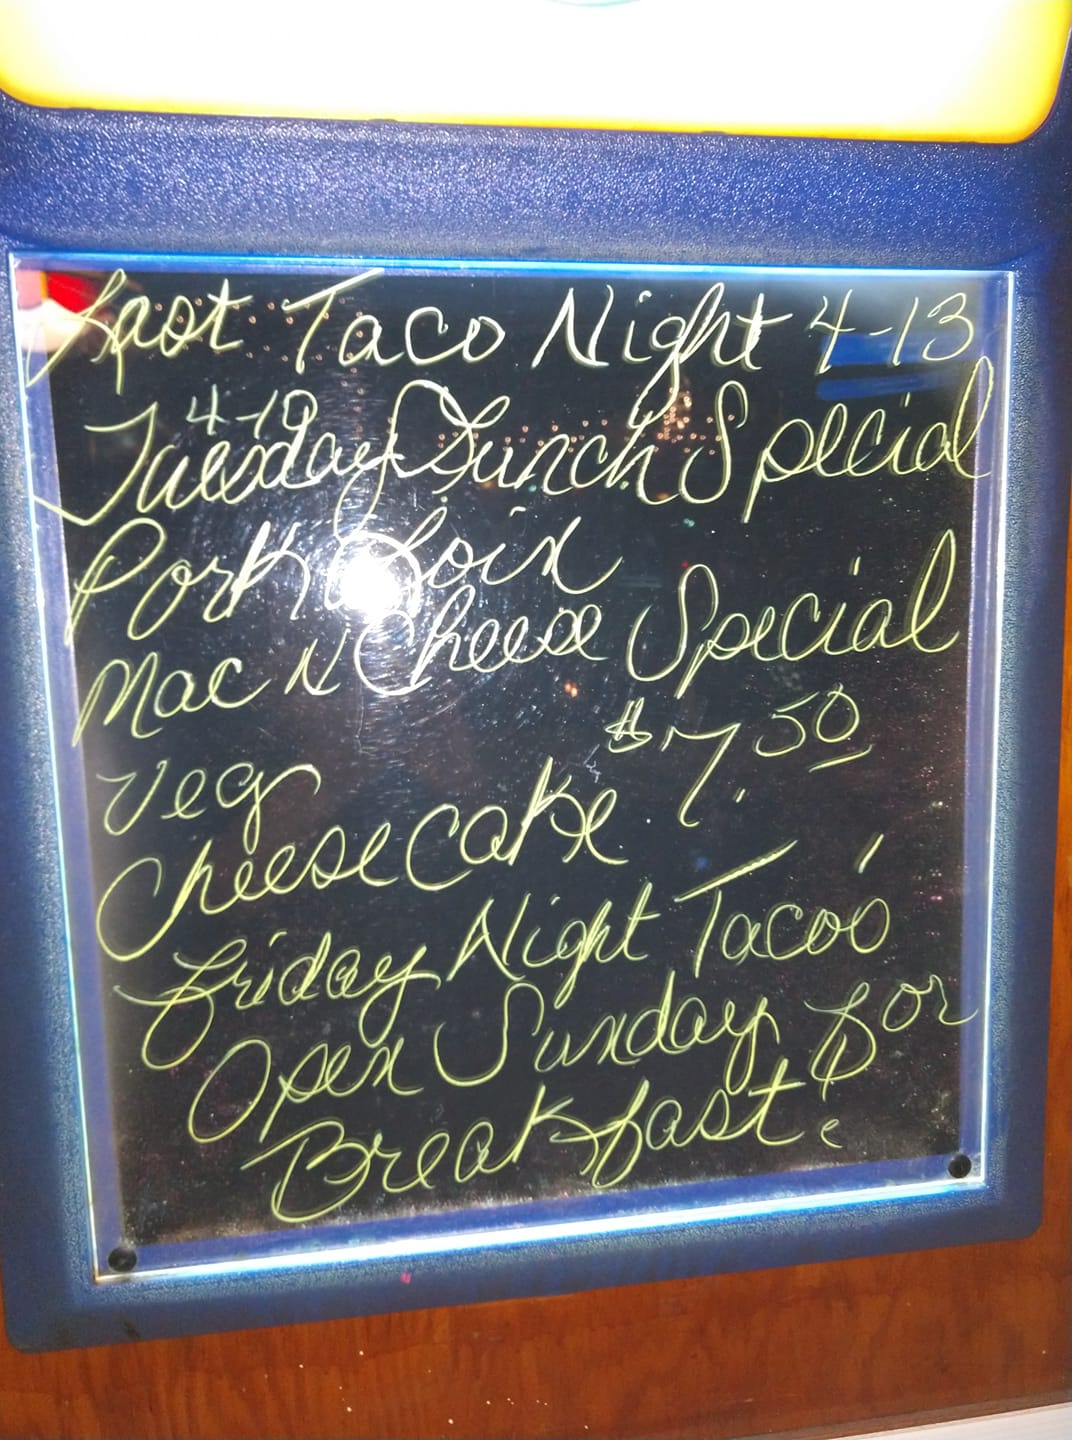 Last Taco Night 4-13
4-10
Tuesday Lunch Special
Pork Loin
Mac N Cheese Special
$7.50
Veg
Cheese Cake
Friday Night Taco's
Open Sunday for
Breakfast.